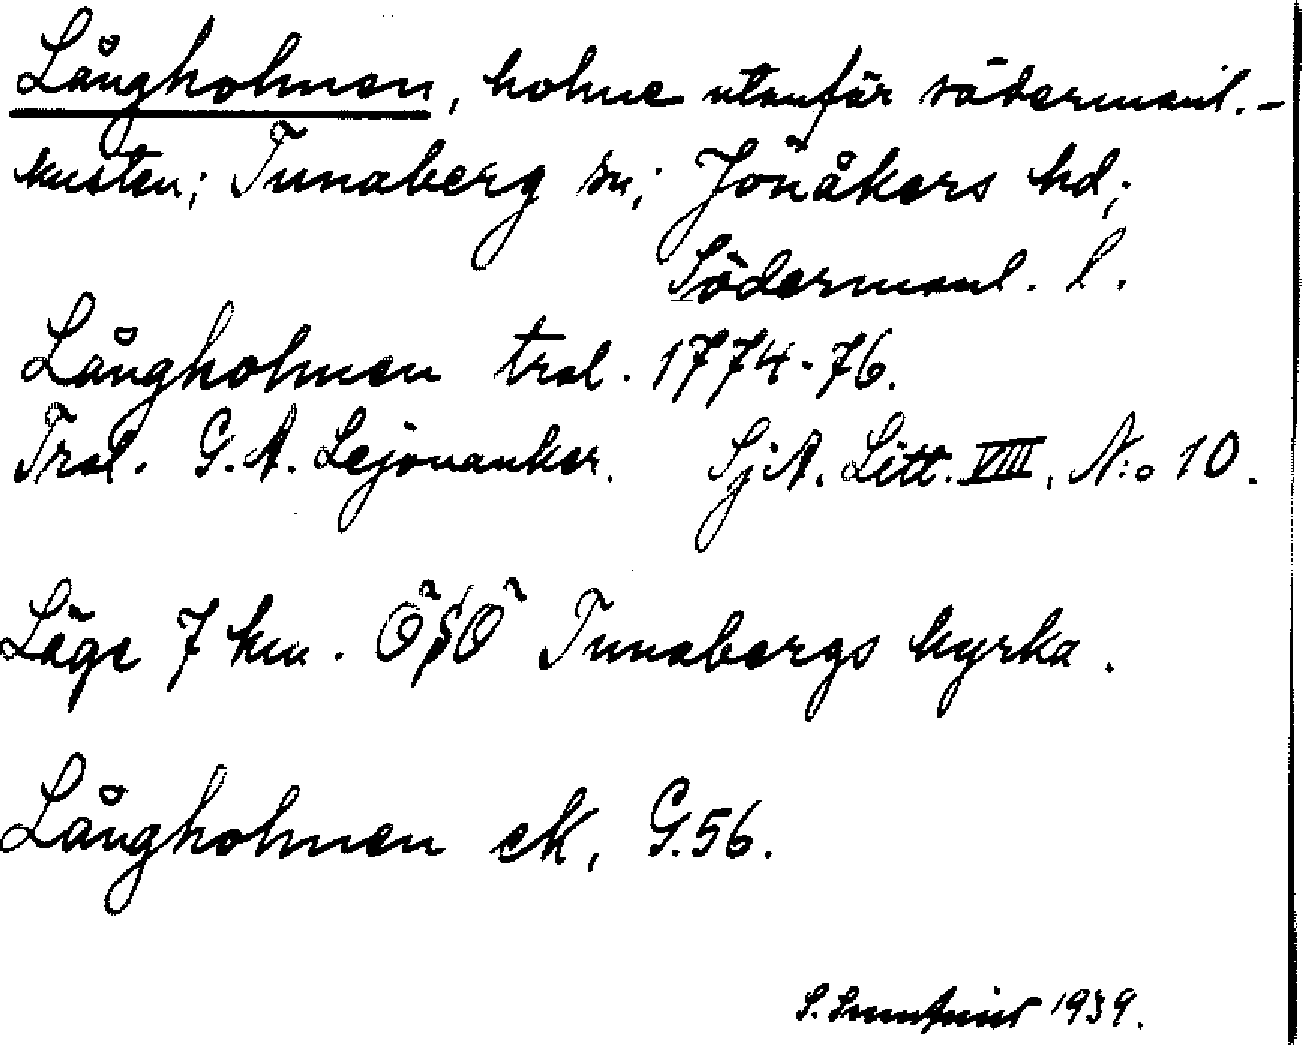 Långholmen, holme utanför södermanl.-
kusten; Tunaberg sn; Jönåkers hd;
Södermanl. l.
Långholmen tral. 1774-76.
Tral. G. A. Lejonanker. SjA. Litt. VIII. N:o 10.
Läge 7 km. OSO Tunabergs kyrka.
Långholmen eK, G.56.
S. 1939.